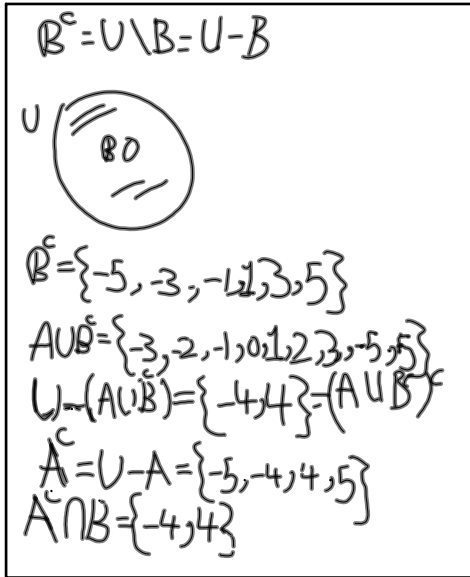 B^c = U \ B = U - B
U
B O
B^c = {-5, -3, -1, 1, 3, 5}
A ∪ B^c = {-3, -2, -1, 0, 1, 2, 3, -5, 5}
U - (A ∪ B^c) = {-4, 4} = (A ∪ B^c)^c
A^c = U - A = {-5, -4, 4, 5}
A^c ∩ B = {-4, 4}